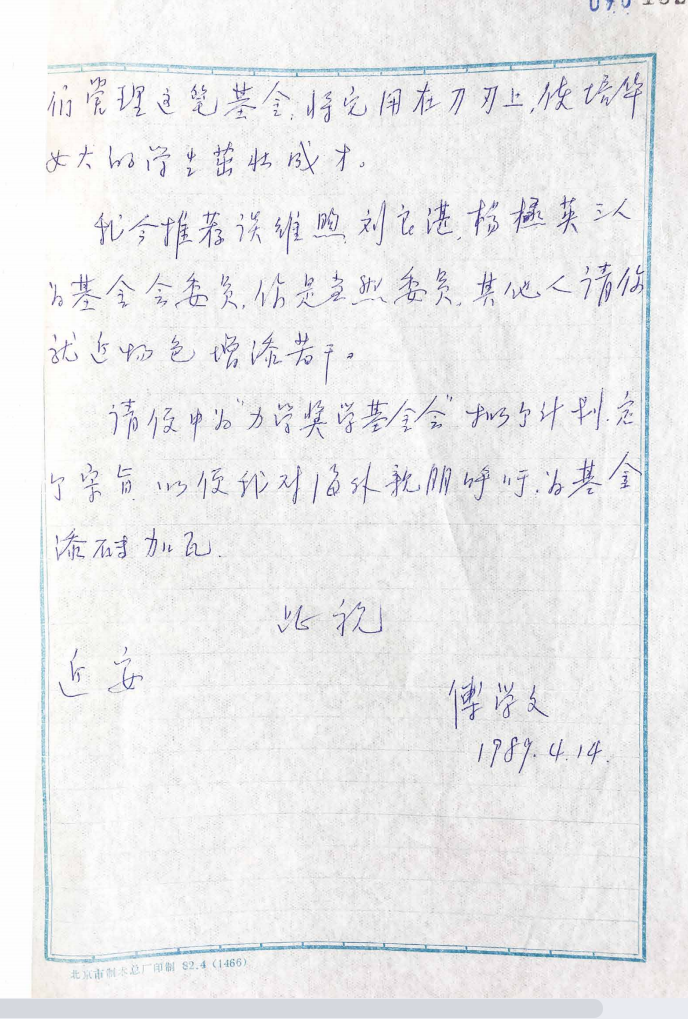 们管理这笔基金,将它用在刀刃上,使培华
女大的学生茁壮成才。
我今推荐误维煦,刘良湛,杨 英三人
为基金会委员,你是当然委员,其他人请你
就近物色增添若干。
请便中为"力学奖学基金会"拟个计划,定
个宗旨,以便我对海外亲朋呼吁,为基金
添砖加瓦.
此祝
近安
傅学文
1989.4.14.
北京市制本总厂印制 82.4 (1466)